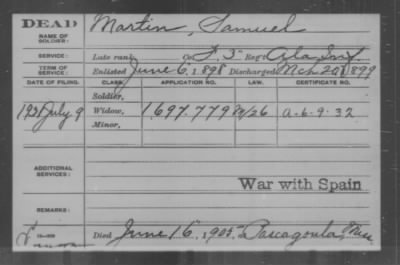 DEAD
NAME OF SOLDIER: Martin, Samuel
SERVICE: Late rank Co. F. 3" Reg't Ala Inf.
TERM OF SERVICE: Enlisted June 6, 1898 Discharged Mch 20, 1899
DATE OF FILING. CLASS. APPLICATION NO. LAW. CERTIFICATE NO.
Soldier,
1931 July 9 Widow, 1,697.779 A-6-9-32
Minor,
ADDITIONAL SERVICES:
War with Spain
REMARKS:
Died June 16", 1905, Pascagoula, Miss